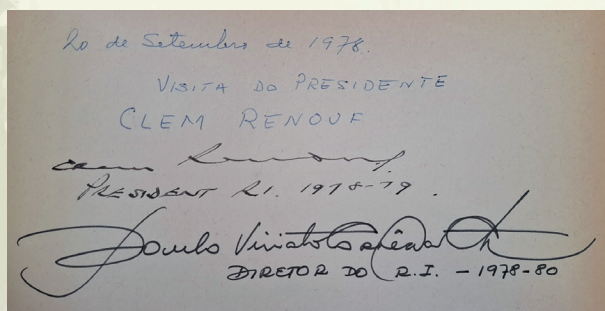 20 de Setembro de 1978.
VISITA DO PRESIDENTE
CLEM RENOUF
Clem Renouf
PRESIDENT R.I. 1978-79.
Paulo Viriato Corrêa da Costa
DIRETOR DO R.I. - 1978-80